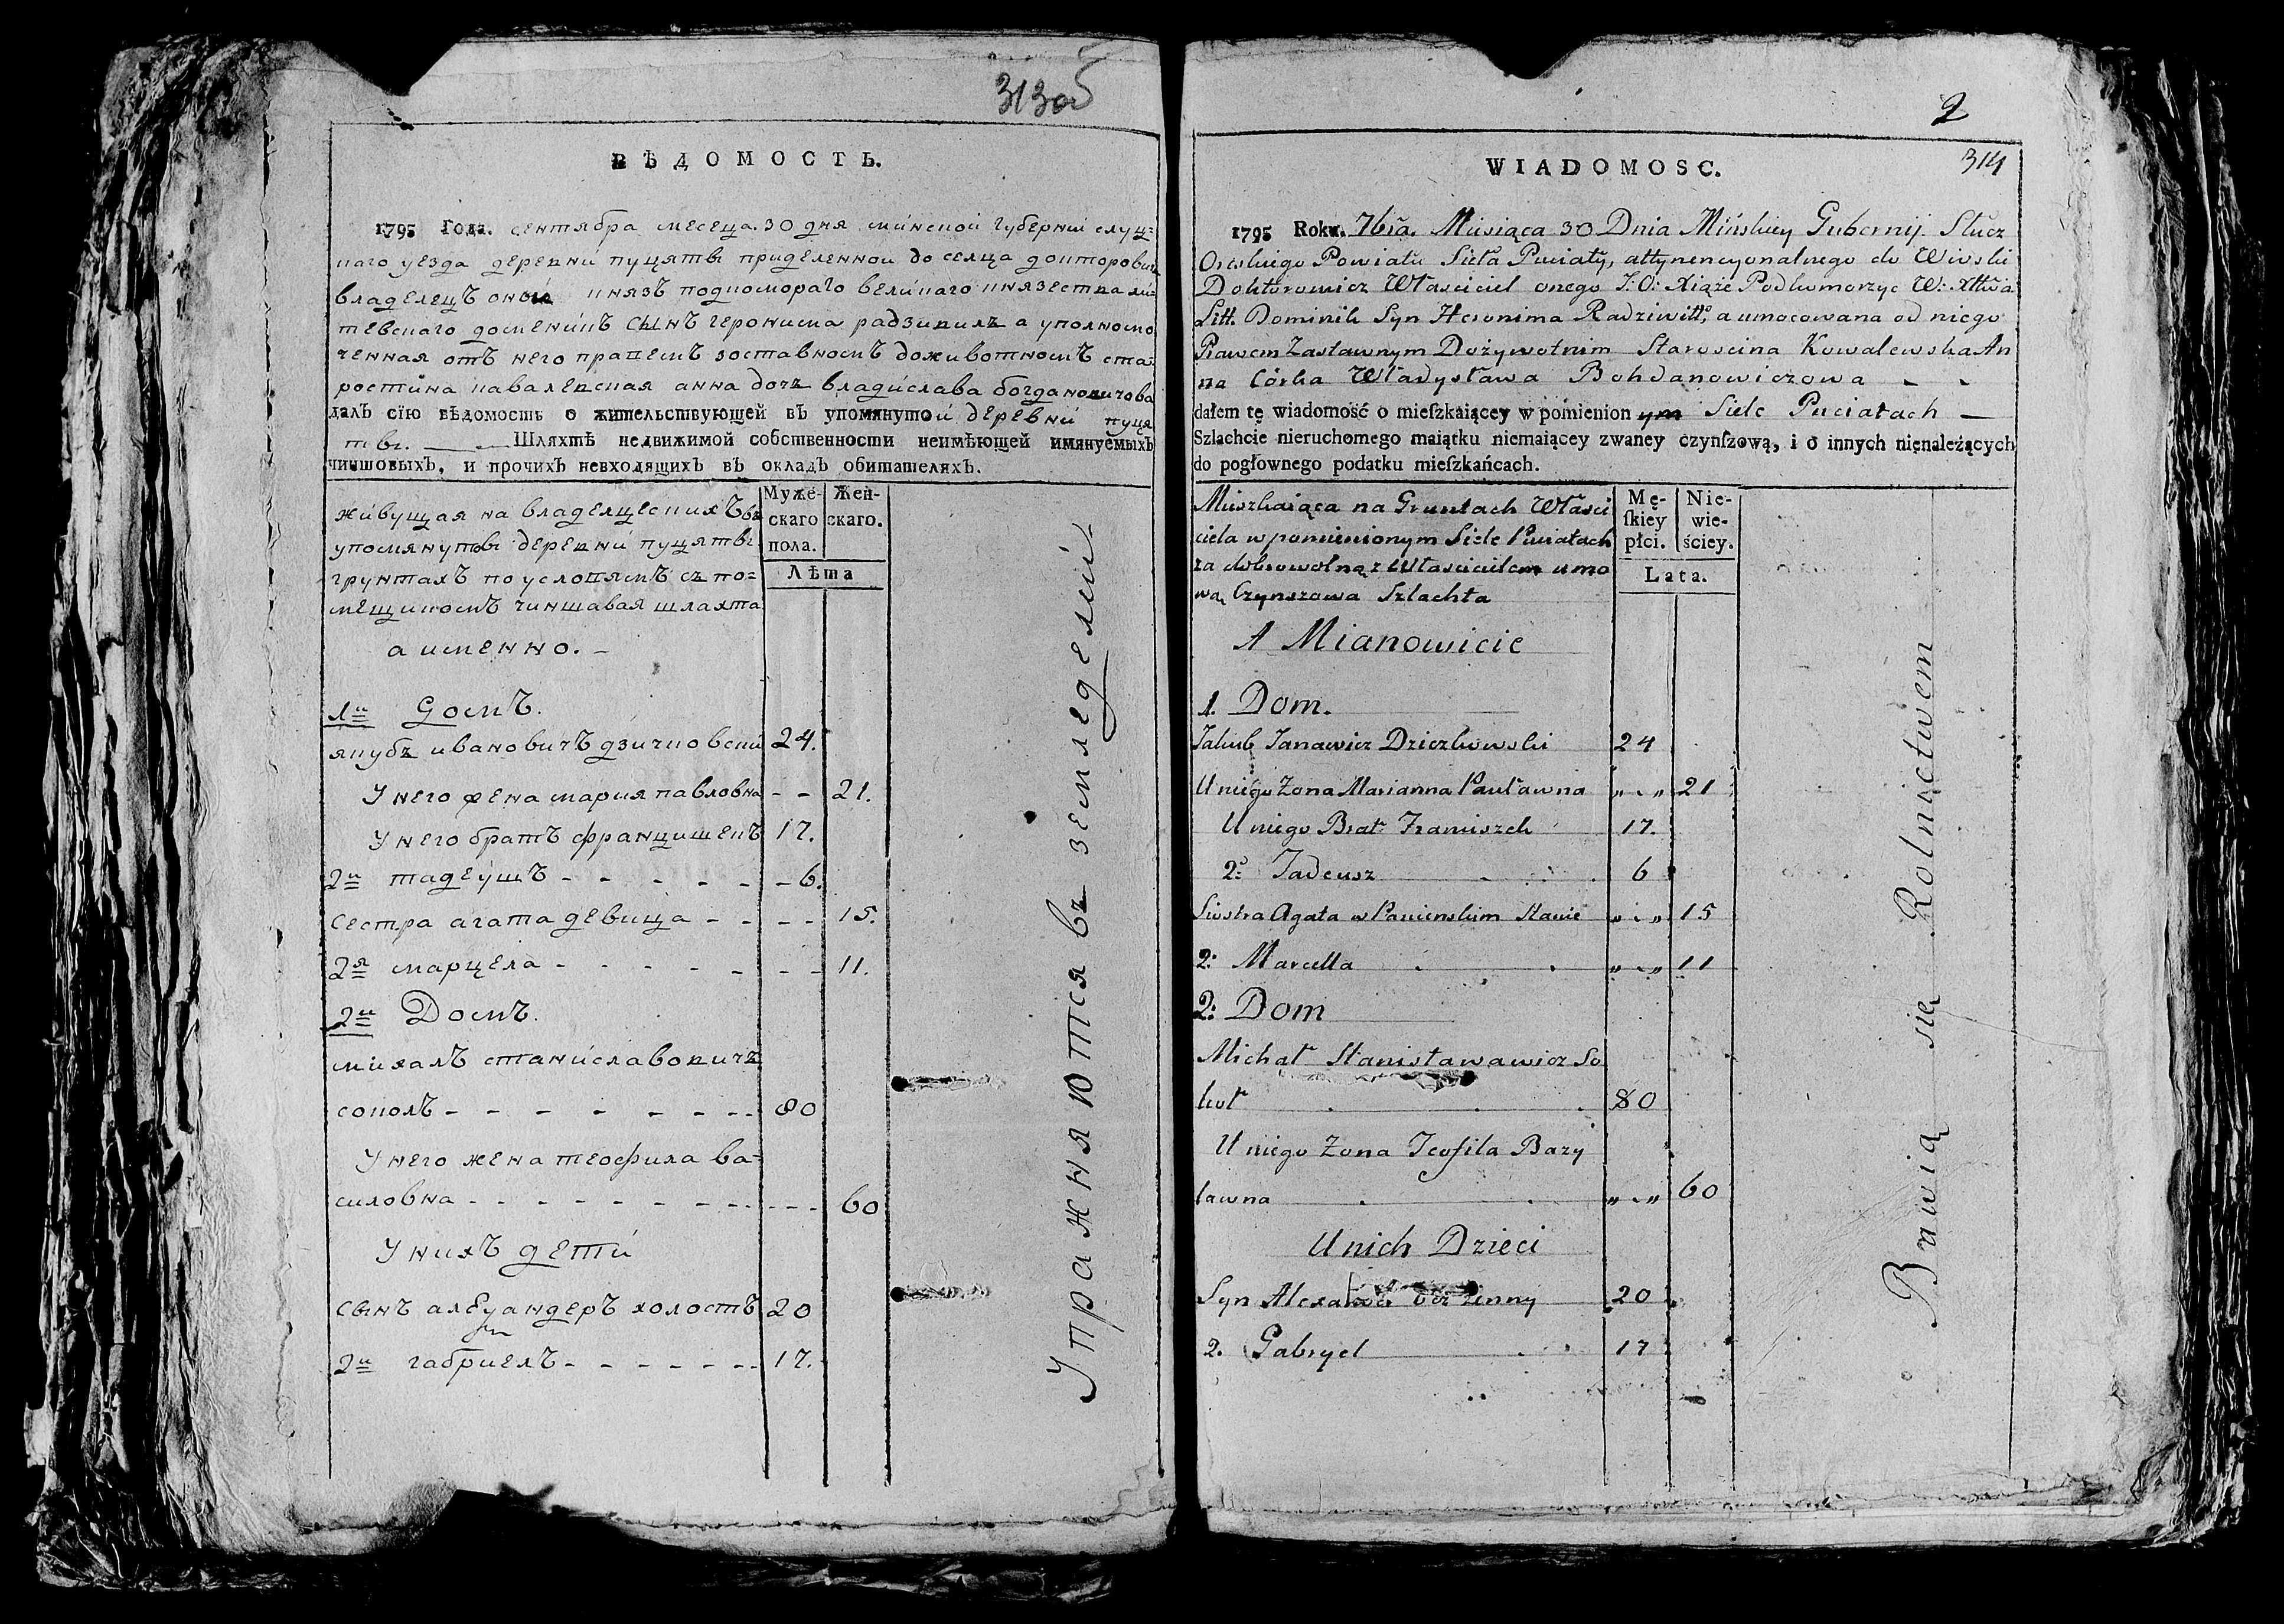 313об
ВѢДОМОСТЬ.
1795 Года. сентября месеца. 30 дня минской губернии слуц=
каго уезда деревни пуцяты приделенной до селца докторович
владелецъ оной князь подкомораго великаго князества ли=
товскаго доминикъ сынъ геронима радзивилъ а уполномо
ченная отъ него правемъ зоставномъ доживотномъ ста=
ростина ковалевская анна дочь владислава богдановичова
далъ сїю вѣдомость о жительствующей въ упомянутой деревни пуця
ты. Шляхтѣ недвижимой собственности неимѣющей имянуемыхъ
чиншовыхъ, и прочихъ невходящихъ въ окладъ обитателяхъ.
живущая на владелщескихъ въ
упомянуты деревни пуцяты
грунтахъ по условямъ съ по=
мещикомъ чиншавая шляхта
а именно. –
Мужескаго пола. Женскаго.
Лѣта
1й Домъ.
якубъ ивановичъ дзичковски 24.
У него жена мария павловна - - 21.
У него братъ францишекъ 17.
2й тадеушъ - - - - - - 6.
сестра агата девица - - - - 15.
2я марцела - - - - - - - 11.
2й Домъ.
михалъ станиславовичъ
соколъ - - - - - - - - 80
У него жена теофила ва=
силовна - - - - - - - - - - - 60
У нихъ дети
сынъ александеръ холостъ 20
2й габриелъ - - - - - - - 17.
Упражняются въ земледелии
2
314
WIADOMOSC.
1795 Roku. 7bra. Miesiąca 30 Dnia Mińskiey Gubernij Słucz
Oreskiego Powiatu Sieła Puciaty, attynencyonalnego do Wioski
Doktorowicz Własciciel onego J: O: Xiąże Podkomorzyc W: Xttwa
Litt. Dominik Syn Heronima Radziwiłł, a umocowana od niego
Prawem Zastawnym Dożywotnim Starościna Kowalewska An
na Córka Władysława Bohdanowiczowa – –
dałem tę wiadomość o mieſzkaiącey w pomienionym Siele Puciatach —
Szlachcie nieruchomego maiątku niemaiącey zwaney czynſzową, i o innych nienależących
do pogłownego podatku mieſzkańcach.
Mieszkaiąca na Gruntach Własci
ciela w pomienionym Siele Puciatach
za dobrowolną z Własicielem umo
wą Czynszowa Szlachta
A Mianowicie
Męſkiey płci. Niewieściey.
Lata.
1. Dom.
Jakub Janawicz Dziczkowski 24
U niego Żona Marianna Pawławna „ „ 21
U niego Brat Franciszek 17.
2: Tadeusz 6
Siostra Agata w Panienskim Stanie „ „ 15
2: Marcella „ „ 11
2: Dom
Michał Stanisławawicz So
koł 80
U niego Żona Teofila Bazy
lawna „ „ 60
U nich Dzieci
Syn Alexander bezżenny 20
2. Gabryel 17
Bawią się Rolnictwem